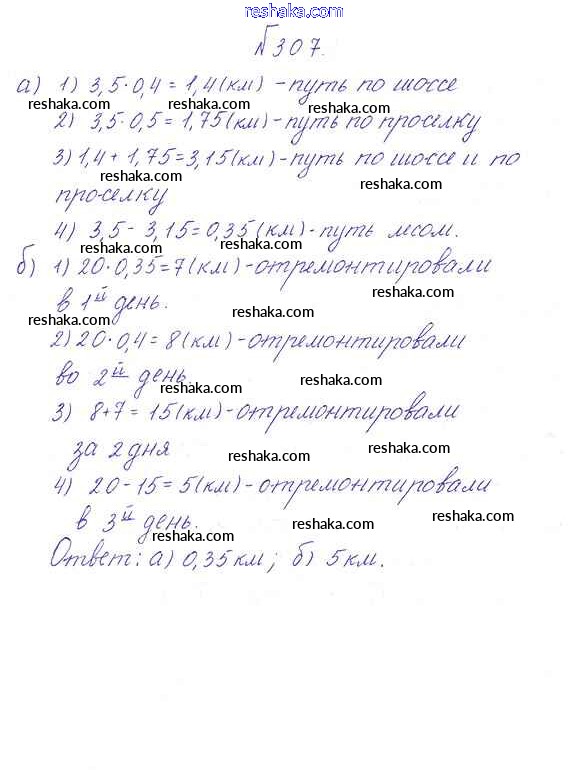 reshaka.com
№307.
а) 1) 3,5·0,4=1,4(км) -путь по шоссе
reshaka.com reshaka.com reshaka.com
2) 3,5·0,5=1,75(км)-путь по проселку
3) 1,4+1,75=3,15(км)-путь по шоссе и по
reshaka.com reshaka.com
проселку
4) 3,5-3,15=0,35(км)-путь лесом.
reshaka.com reshaka.com
б) 1) 20·0,35=7(км)-отремонтировали
reshaka.com
в 1й день.
reshaka.com reshaka.com
2) 20·0,4=8(км)-отремонтировали
во 2й день.
reshaka.com reshaka.com
3) 8+7=15(км)-отремонтировали
за 2 дня
reshaka.com reshaka.com
4) 20-15=5(км)-отремонтировали
в 3й день.
reshaka.com reshaka.com reshaka.com
Ответ: а) 0,35км; б) 5км.